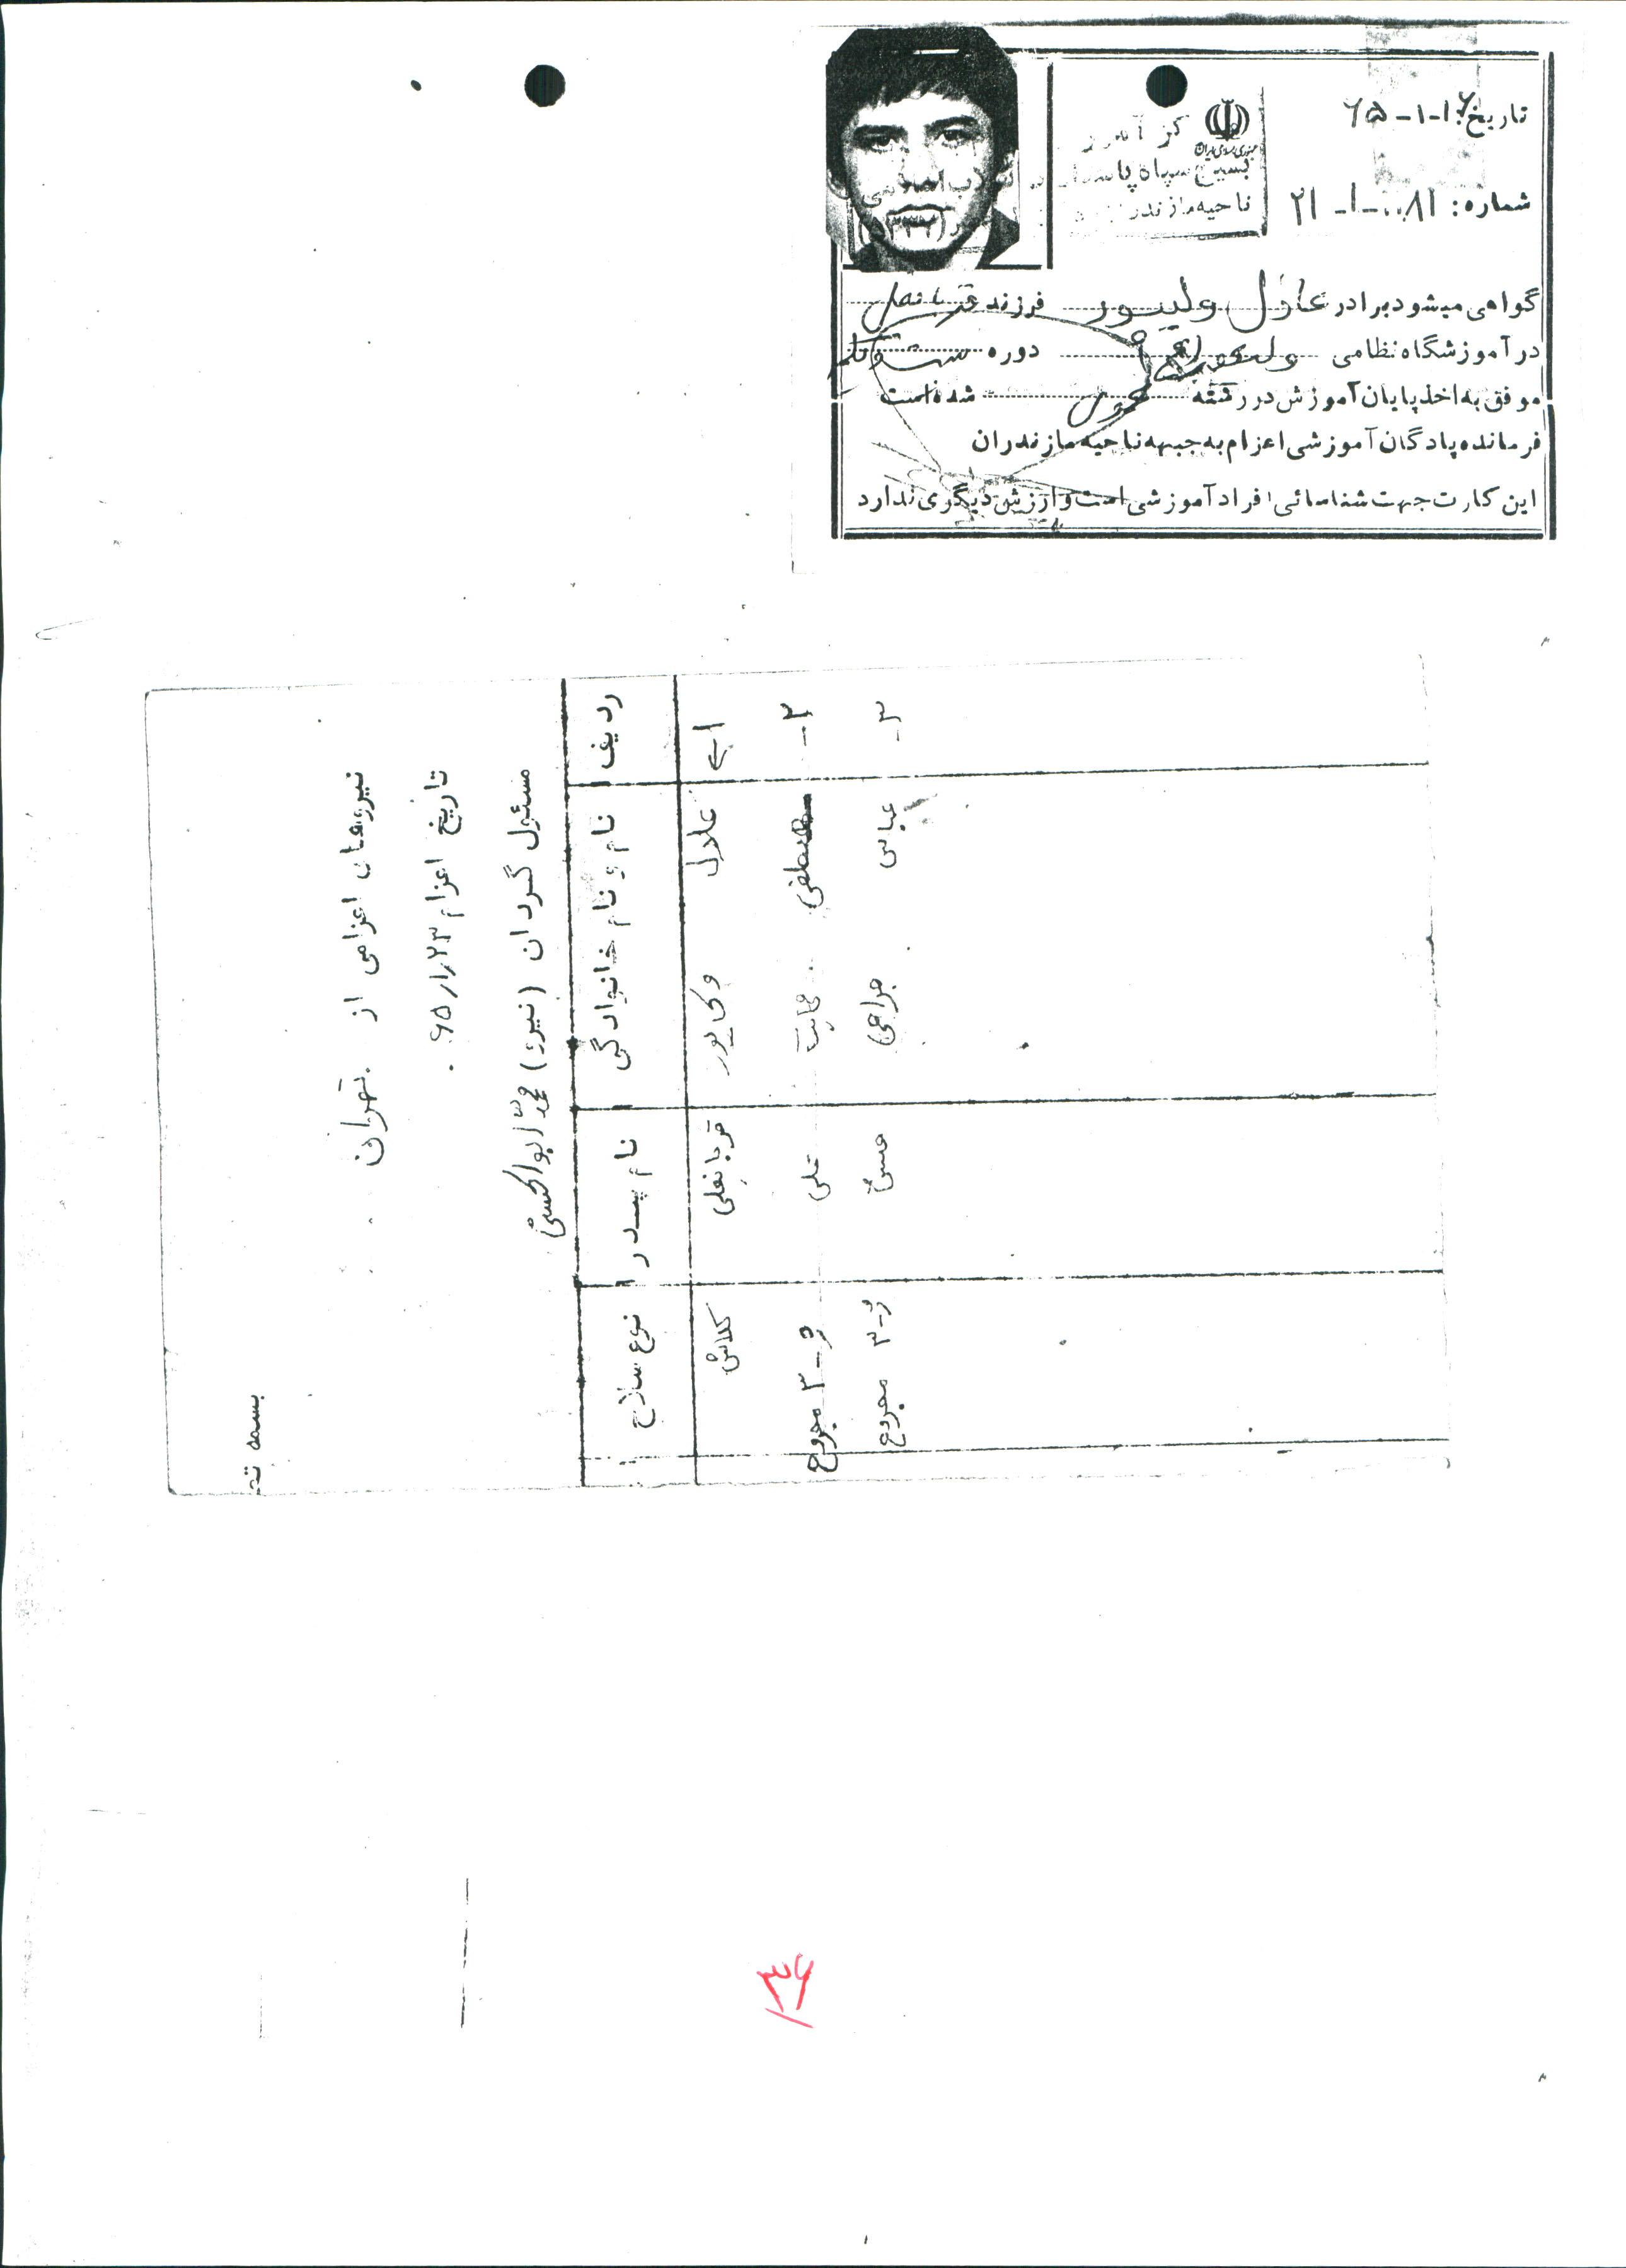 تاریخ: ۱۶-۱-۶۵
شماره: ۸۱۰۰-۱-۲۱
جمهوری اسلامی ایران
بسیج سپاه پاسداران انقلاب اسلامی
ناحیه مازندران
گواهی میشود برادر عادل ولیپور فرزند قربانعلی
در آموزشگاه نظامی دوره
موفق به اخذ پایان آموزش در رشته شده است
فرمانده پادگان آموزشی اعزام به جبهه ناحیه مازندران
این کارت جهت شناسائی افراد آموزشی است و ارزش دیگری ندارد
بسمه تع
نیروهای اعزامی از تهران
تاریخ اعزام ۶۵/۱/۲۳
مسئول گردان (نیرو) محمد ابوالحسنی
ردیف نام و نام خانوادگی نام پدر نوع سلاح
۱- عادل ولی پور قربانعلی کلاش
۲- مصطفی علی ژ-۳ مجروح
۳- عباس جراحی حسن ژ-۳ مجروح
۳۶